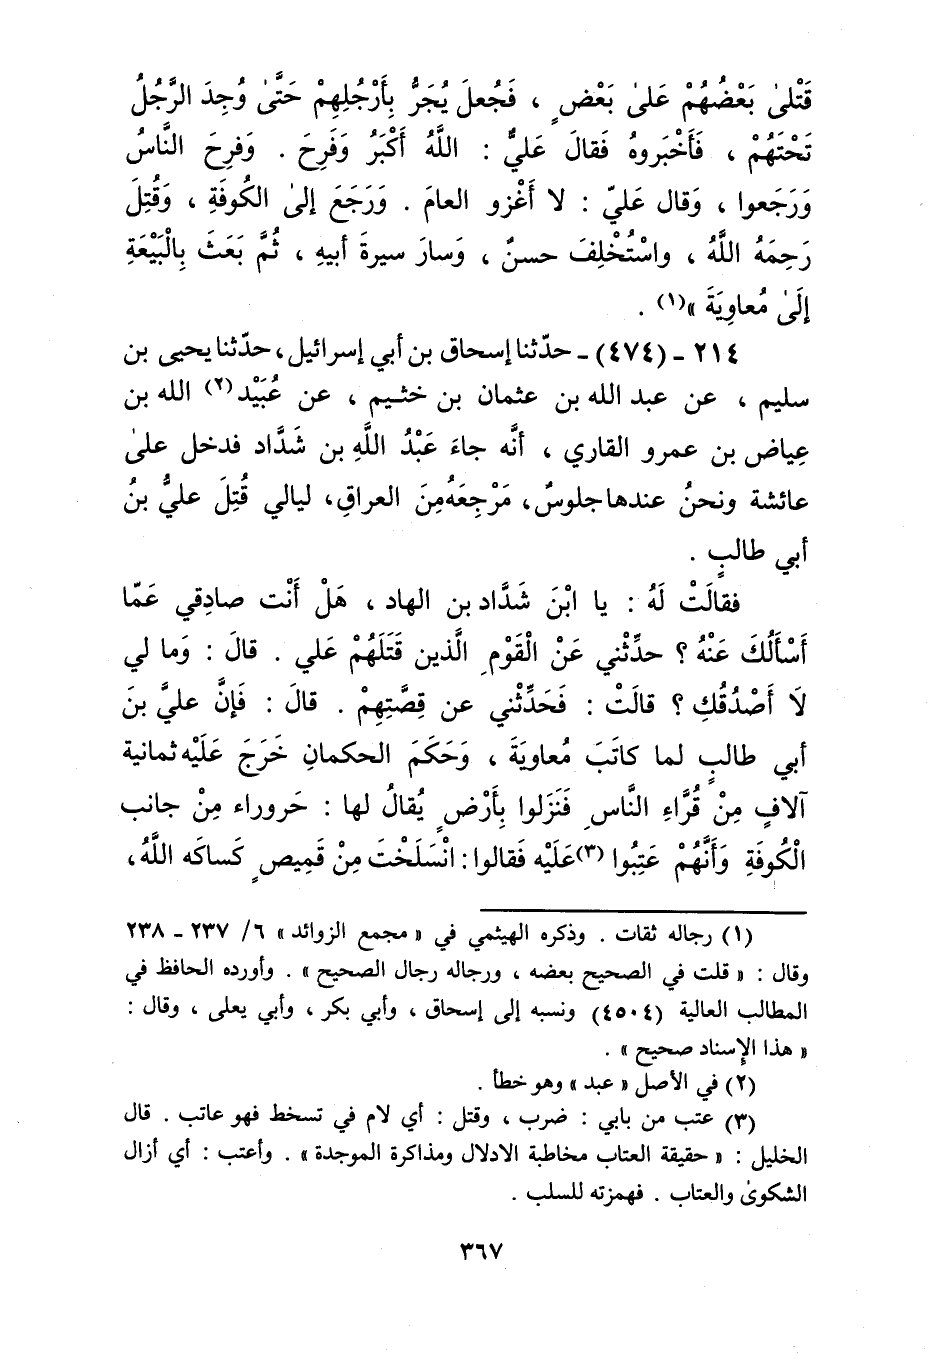 قَتْلىٰ بَعْضُهُمْ عَلىٰ بَعْضٍ ، فَجُعلَ يُجَرُّ بِأَرْجُلِهِمْ حَتَّىٰ وُجِدَ الرَّجُلُ
تَحْتَهُمْ ، فَأَخْبَروهُ فَقالَ عَليٌّ : اللَّهُ أَكْبَرُ وَفَرِحَ . وَفرِحَ النَّاسُ
وَرَجَعوا ، وَقال عَليّ : لا أَغْزو العامَ . وَرَجَعَ إلىٰ الكُوفَةِ ، وَقُتِلَ
رَحِمَهُ اللَّهُ ، واسْتُخْلِفَ حسنٌ ، وَسارَ سيرةَ أبيهِ ، ثُمَّ بَعَثَ بِالْبَيْعَةِ
إلَىٰ مُعاوِيَةَ »(١) .
٢١٤ ـ (٤٧٤) ـ حدّثنا إسحاق بن أبي إسرائيل، حدّثنا يحيى بن
سليم ، عن عبد الله بن عثمان بن خثـيم ، عن عُبَيْد(٢) الله بن
عِياض بن عمرو القاري ، أنَّه جاءَ عَبْدُ اللَّهِ بن شَدَّاد فدخل علىٰ
عائشة ونحنُ عندها جلوسٌ، مَرْجِعَهُ مِنَ العراقِ، ليالي قُتِلَ عليُّ بنُ
أبي طالبٍ .
فقالَتْ لَهُ : يا ابْنَ شَدَّاد بن الهاد ، هَلْ أَنْت صادِقي عَمَّا
أَسْأَلُكَ عَنْهُ ؟ حدِّثْني عَنْ الْقَوْمِ الَّذين قَتَلَهُمْ عَلي . قالَ : وَما لي
لَا أَصْدُقُكِ ؟ قالَتْ : فَحَدِّثْني عن قِصَّتِهِمْ . قالَ : فَإنَّ عليَّ بنَ
أبي طالبٍ لما كاتَبَ مُعاويَةَ ، وَحَكَمَ الحكمانِ خَرَجَ عَلَيْه ثمانية
آلافٍ مِنْ قُرَّاءِ النَّاسِ فَنَزَلوا بِأَرْضٍ يُقالُ لها : حَروراء مِنْ جانب
الْكُوفَةِ وَأَنَّهُمْ عَتِبُوا (٣)عَلَيْه فَقالوا: انْسَلَخْتَ مِنْ قَميصٍ كَساكَه اللَّهُ،
(١) رجاله ثقات . وذكره الهيثمي في « مجمع الزوائد » ٦/ ٢٣٧ ـ ٢٣٨
وقال : « قلت في الصحيح بعضه ، ورجاله رجال الصحيح » . وأورده الحافظ في
المطالب العالية (٤٥٠٤) ونسبه إلى إسحاق ، وأبي بكر ، وأبي يعلى ، وقال :
« هذا الإسناد صحيح » .
(٢) في الأصل « عبد » وهو خطأ .
(٣) عتب من بابي : ضرب ، وقتل : أي لام في تسخط فهو عاتب . قال
الخليل : « حقيقة العتاب مخاطبة الادلال ومذاكرة الموجدة » . وأعتب : أي أزال
الشكوىٰ والعتاب . فهمزته للسلب .
٣٦٧